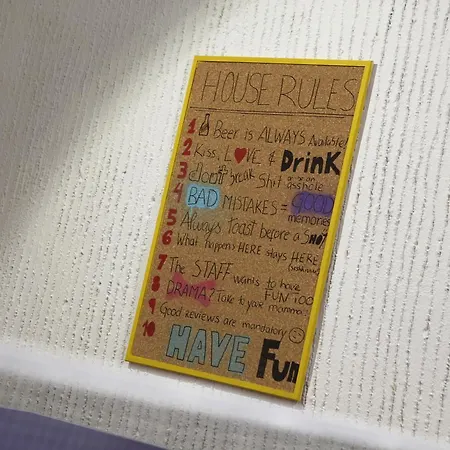 HOUSE RULES
1 Beer is ALWAYS Available!
2 Kiss, L♥VE & DrinK
3 break Shit or be an asshole
4 BAD MISTAKES = GOOD memories
5 Always toast before a SHOT
6 What happens HERE stays HERE
7 The STAFF wants to have FUN TOO
8 DRAMA? Take to your mamma
9 Good reviews are mandatory ☺
10 HAVE Fun